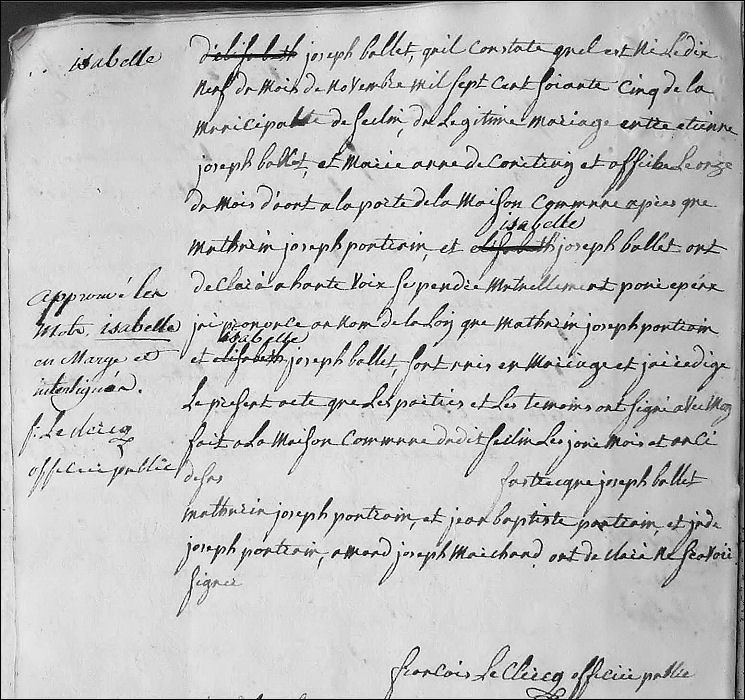 isabelle
d'elisabeth joseph ballet, qu'il constate quel est né le dix
neuf du mois de novembre mil sept cent soiante cinq de la
municipalité de seclin, du legitime mariage entre etienne
joseph ballet, et marie anne et affiche le onze
du mois d'aout a la porte de la maison commune apres que
isabelle
mathurin joseph pontrain, et elisabeth joseph ballet ont
declaré a haute voix se pendre mutuellement pour epoux
jai prononcé au nom de la loy que mathurin joseph pontrain
isabelle
et elisabeth joseph ballet sont unis en mariage et jai redigé
le present acte que les parties et les temoins ont signé avec moy
fait a la maison commune dudit seclin les jour mois et an ci
desus
joseph ballet
mathurin joseph pontrain, et jean baptiste pontrain, et
joseph pontrain, amand joseph marchand, ont declaré ne scavoir
signer
approuvé les
mots isabelle
en marge et
interligne
f. leclercq
officier public
francois le clercq officier public